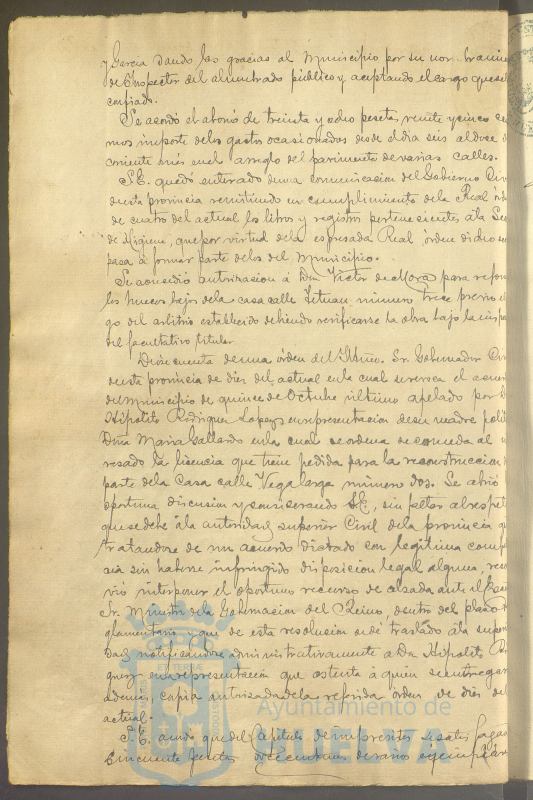 y Garcia dando las gracias al Municipio por su nombramien
de Inspector del alumbrado público y aceptando el cargo que se
confiado.
Se acordó el abono de treinta y ocho pesetas, veinte y cinco cen
mos importe delos gastos ocasionados desde el dia seis al doce d
corriente mes en el arreglo del pavimento de varias calles.
S.E. quedó enterado de una comunicacion del Gobierno Civ
de esta provincia remitiendo en cumplimiento de la Real órd
de cuatro del actual los libros y registros pertenecientes á la Sec
de Higiene, que por virtud dela espresada Real órden dicho
pasa á formar parte delos del Municipio.
Se concedió autorizacion á Don Victor de Mora para reform
los huecos bajos dela casa calle Tetuan número trece previo el
go del arbitrio establecido debiendo verificarse la obra bajo la inspec
del facultativo titular.
Dióse cuenta de una órden del Iltmo. Sr. Gobernador Civ
de esta provincia de diez del actual en la cual se revoca el acuer
del Municipio de quince de Octubre último apelado por D
Hipolito Rodriguez Lopez en representacion de su madre polit
Dña Maria Gallardo en la cual se ordena se conceda al
resado la licencia que tiene pedida para la reconstruccion
parte dela Casa calle Vega larga número dos. Se abrió
oportuna discusion y considerando S.E., sin faltar al respet
que se debe á la autoridad superior Civil dela provincia q
tratandose de un acuerdo dictado con legítima comp
cia sin haberse infringido disposicion legal alguna, reso
vió interponer el oportuno recurso de alzada ante el
Sr. Ministro dela Gobernacion del Reino, dentro del plazo
glamentario y que de esta resolucion se dé traslado á la super
dad, notificandose administrativamente a Don Hipolito Ro
guez en representacion que ostenta á quien se entregar
ademas, copia autorizada dela referida órden de diez del
actual.
S.E. acordó que del Capitulo de imprevistos se satisfagan
Cincuenta pesetas doce centimos de varios ejemplares
ET TERRÆ
Ayuntamiento de
HUELVA